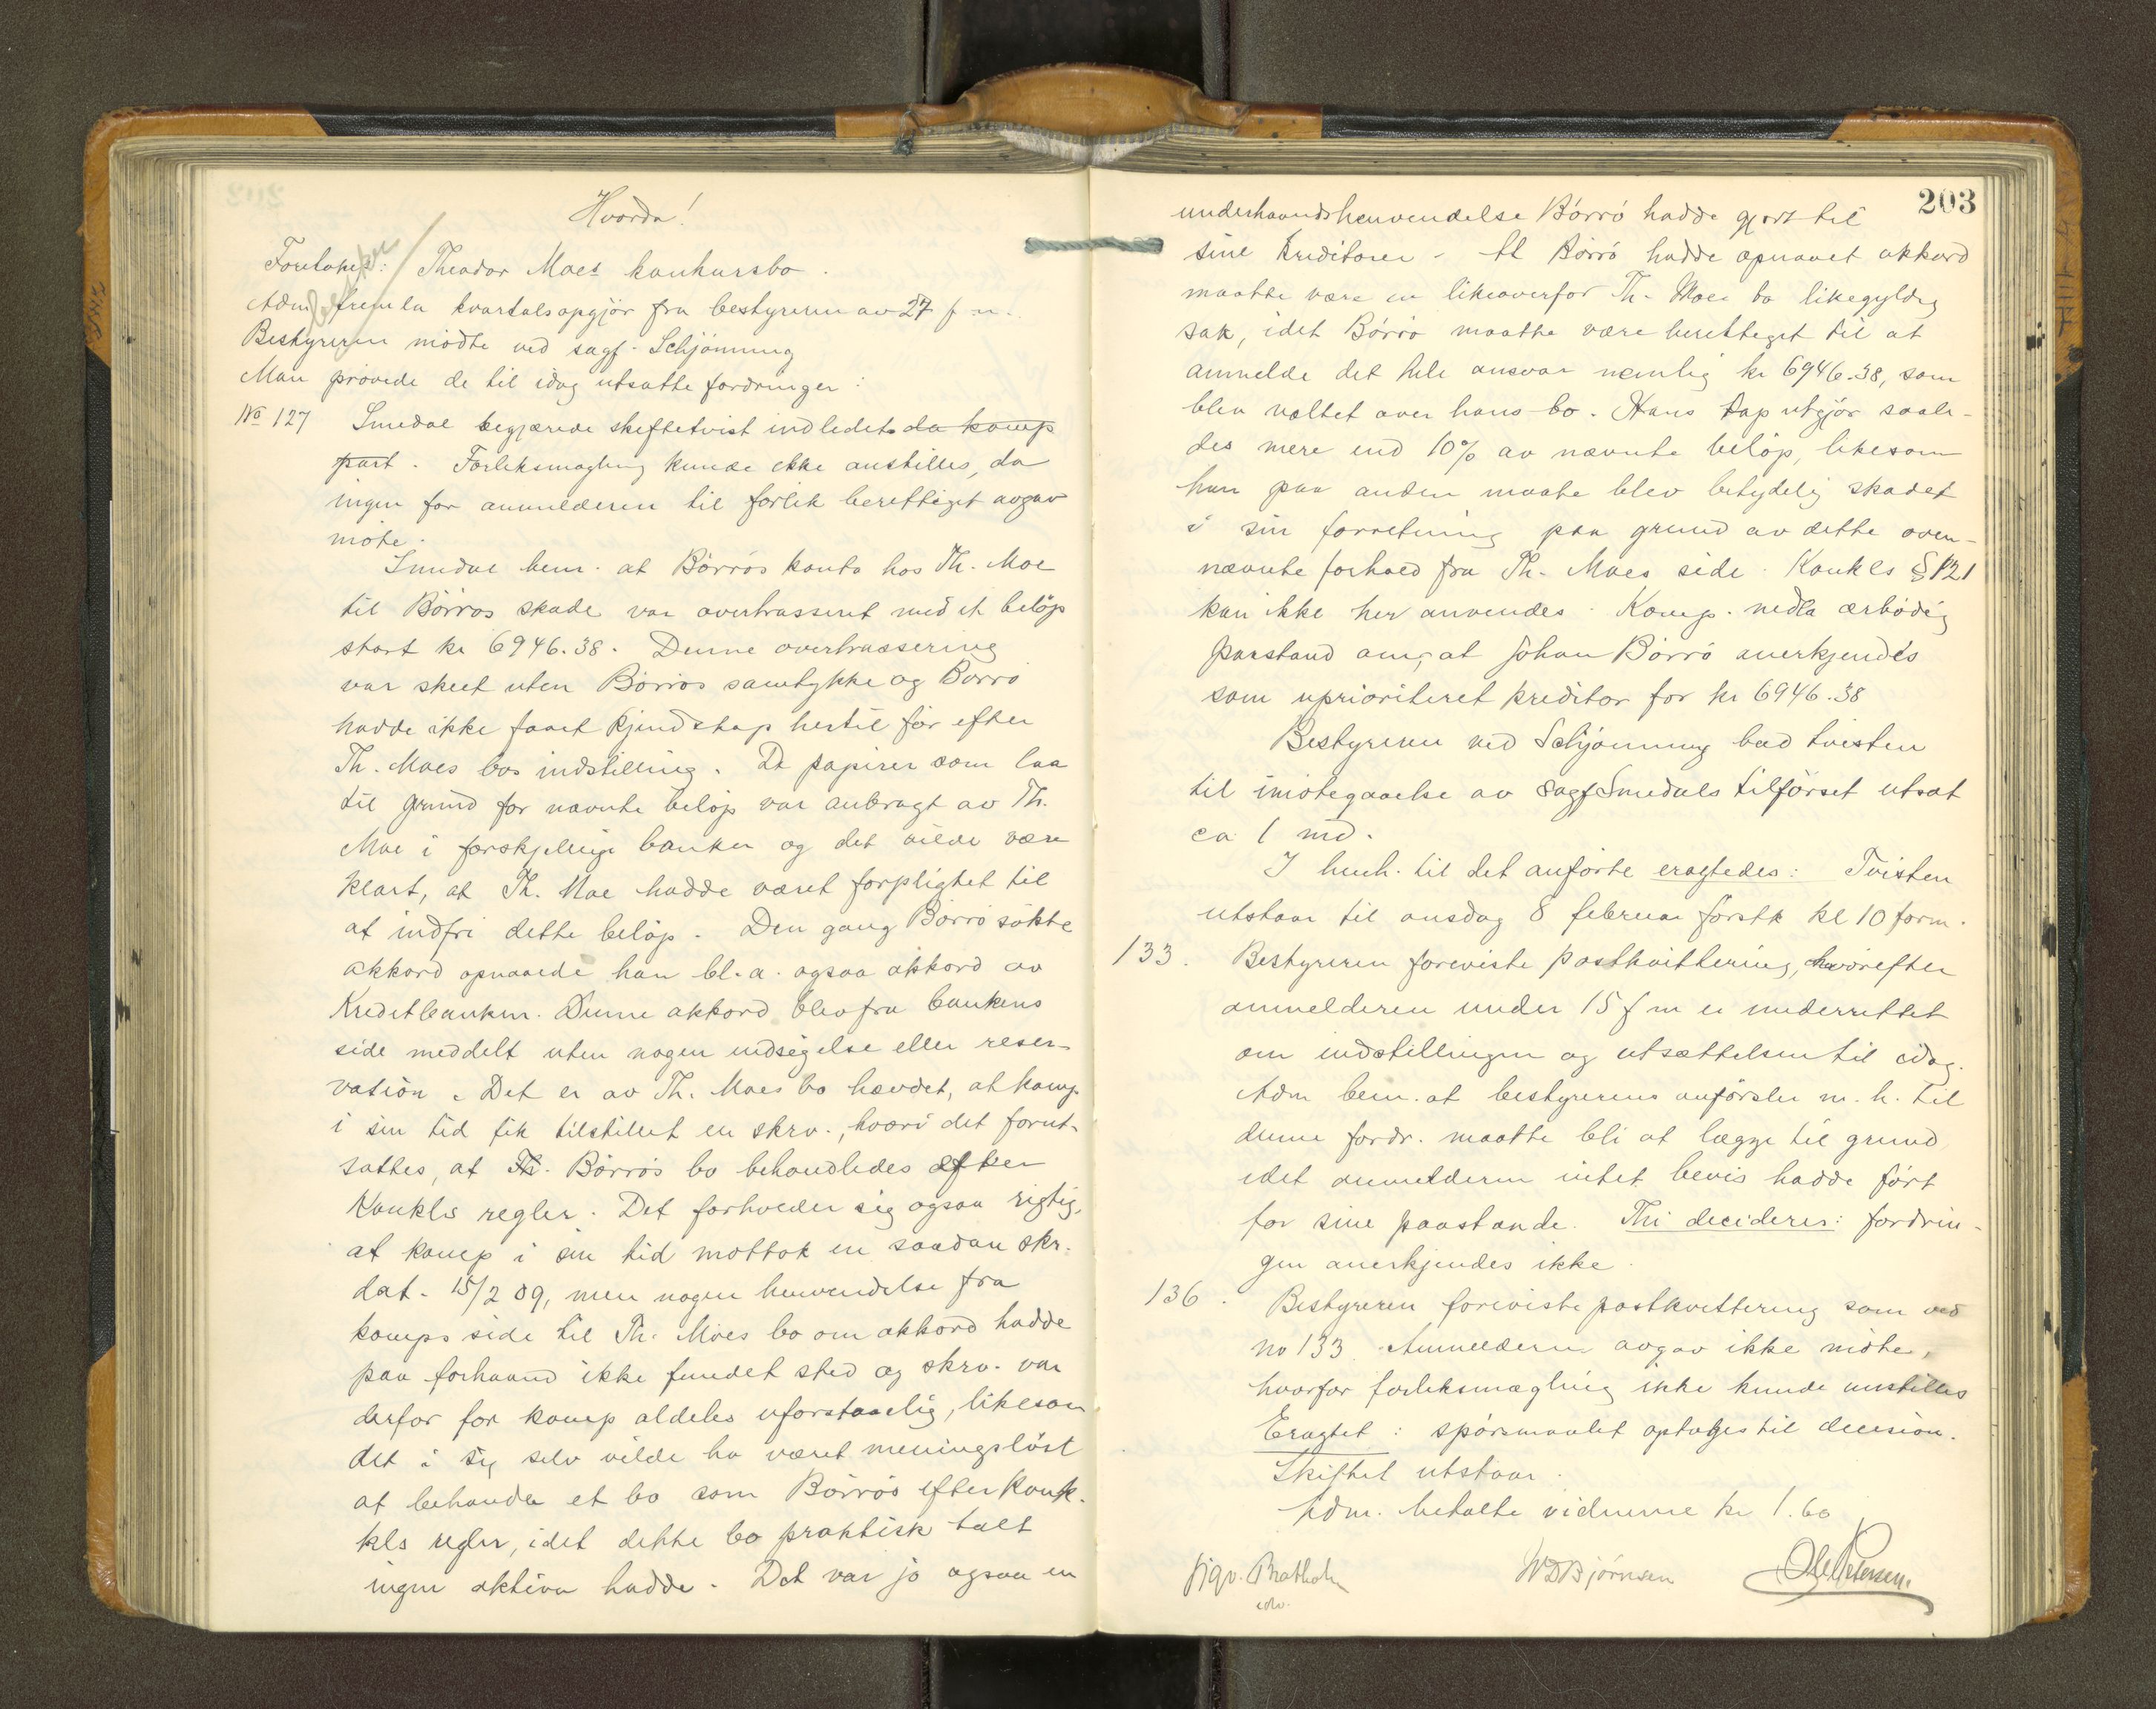 Hvorda!
Foretokes: Theodor Moes konkursbo.
Adm fremla kvartalsopgjör fra bestyreren av 27 f. m.
Bestyreren mödte ved sagf. Schjönning
Man prövede de til idag utsatte fordringer:
No 127 Smedal begjærede skiftetvist indledet da komp
part. Forliksmægling kunde ikke anstilles, da
ingen for anmelderen til forlik berettiget avgav
möte.
Smedal bem. at Börrös konto hos Th. Moe
til Börrös skade var overtrasseret med et belöp
stort kr 6946.38. Denne overtrassering
var skeet uten Börrös samtykke og Börrö
hadde ikke faaet kjendskap hertil för efter
Th. Moes bos indstilling. De papirer som laa
til grund for nævnte belöp var anbragt av Th.
Moe i forskjellige banker og det vilde være
klart, at Th. Moe hadde været forpligtet til
at indfri dette belöp. Den gang Börrö sökte
akkord opnaaede han bl.a. ogsaa akkord av
Kreditbanken. Denne akkord blev fra bankens
side meddelt uten nogen indsigelse eller reser-
vation. Det er av Th. Moes bo hævdet, at komp.
i sin tid fik tilstillet en skrv., hvori det forut-
sattes, at Th. Börrös bo behandledes efter
Konkls regler. Det forholder sig ogsaa rigtig,
at komp i sin tid mottok en saadan skr.
dat. 15/2 09, men nogen henvendelse fra
komps side til Th. Moes bo om akkord hadde
paa forhaand ikke fundet sted og skrv. var
derfor for komp aldeles uforstaaelig, likesom
det i sig selv vilde ha været meningslöst
at behandle et bo som Börrös efter konk-
kls regler, idet dette bo praktisk talt
ingen aktiva hadde. Det var jo ogsaa en
203
underhaandshenvendelse Börrö hadde gjort til
sine kreditorer. At Börrö hadde opnaaet akkord
maatte være en likeoverfor Th. Moes bo likegyldig
sak, idet Börrö maatte være berettiget til at
anmelde det hele ansvar nemlig kr 6946.38, som
blev væltet over hans bo. Hans tap utgjör saale-
des mere end 10% av nævnte belöp, likesom
han paa anden maate blev betydelig skadet
i sin forretning paa grund av dette oven-
nævnte forhold fra Th. Moes side. Konkls § 121
kan ikke her anvendes. Komp. nedla ærbödig
paastand om, at Johan Börrö anerkjendes
som uprioriteret kreditor for kr 6946.38
Bestyreren ved Schjönning bad tvisten
til imötegaaelse av sagf Smedals tilförsel utsat
ca 1 md.
I henh. til det anförte eragtedes: Tvisten
utstaar til onsdag 8 februar förstk kl 10 form.
133. Bestyreren foreviste postkvittering, hvorefter
anmelderen under 15 f m er underrettet
om indstillingen og utsættelsen til idag.
Adm bem. at bestyrerens anförsler m. h. til
denne fordr. maatte bli at lægge til grund
idet anmelderen intet bevis hadde fört
for sine paastande. Thi decideres: fordrin-
gen anerkjendes ikke.
136. Bestyreren foreviste postkvittering som ved
no 133. Anmelderen avgav ikke möte,
hvorfor forliksmægling ikke kunde anstilles
Eragtet: spörsmaalet optages til decision.
Skiftet utstaar.
Adm. betalte vidnerne kr 1.60
Sigv. Bratholm WDBjörnsen Ole Petersen.